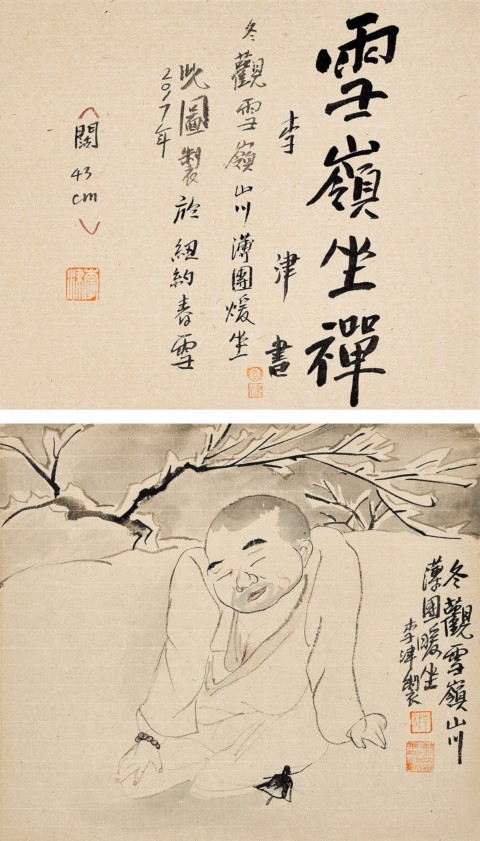 雪嶺坐禪
李津書
冬觀雪嶺山川薄團煖坐
此圖製於紐約春雪
2017年
（闊 43 cm）
冬觀雪嶺山川
薄團暖坐
李津製